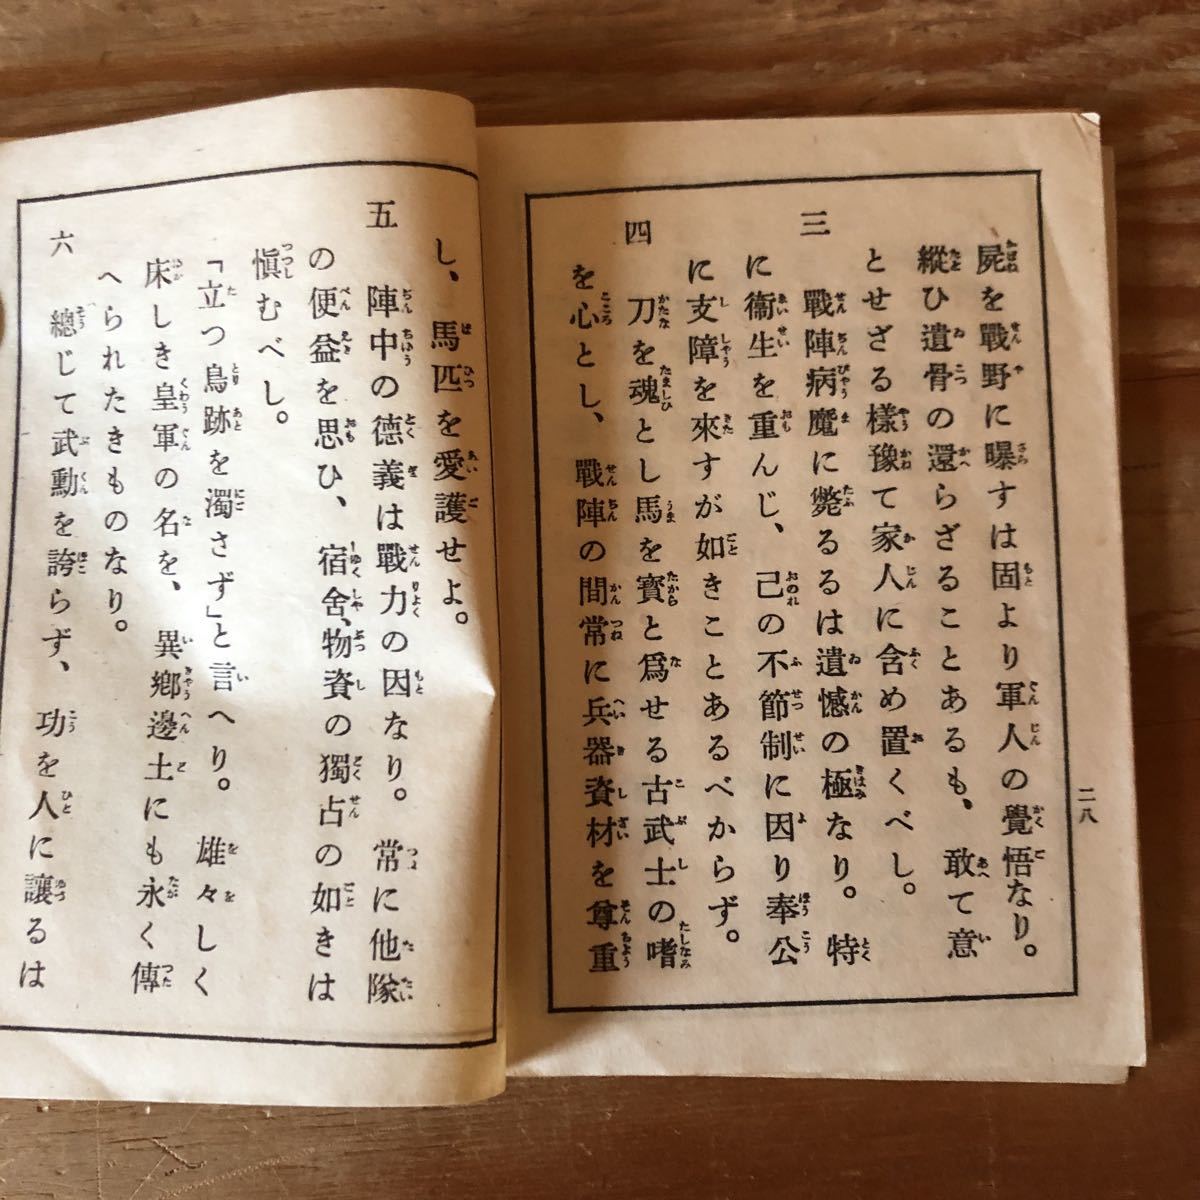 屍を戰野に曝すは固より軍人の覺悟なり。
縱ひ遺骨の還らざることあるも、敢て意
とせざる樣豫て家人に含め置くべし。
三　戰陣病魔に斃るるは遺憾の極なり。特
に衞生を重んじ、己の不節制に因り奉公
に支障を來すが如きことあるべからず。
四　刀を魂とし馬を寶と爲せる古武士の嗜
を心とし、戰陣の間常に兵器資材を尊重
二八
し、馬匹を愛護せよ。
五　陣中の德義は戰力の因なり。常に他隊
の便益を思ひ、宿舍、物資の獨占の如きは
愼むべし。
「立つ鳥跡を濁さず」と言へり。雄々しく
床しき皇軍の名を、異鄕邊土にも永く傳
へられたきものなり。
六　總じて武勳を誇らず、功を人に讓るは